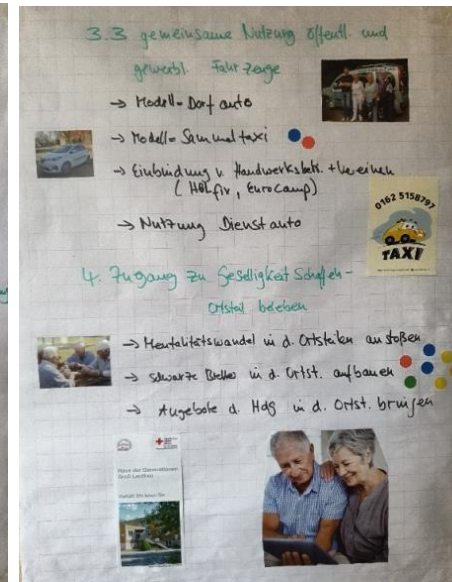 3.3 gemeinsame Nutzung öffentl. und
gewerbl. Fahrzeuge
→ Modell-Dorfauto
→ Modell-Sammeltaxi
→ Einbindung v. Handwerksbetr. + Vereinen
( , EuroCamp)
→ Nutzung Dienstauto
0162 5158797
TAXI
4. Zugang zu Geselligkeit Schaffen -
Ortsteil beleben
→ Mentalitätswandel in d. Ortsteilen anstoßen
→ schwarze Bretter in d. Ortst. aufbauen
→ Angebote d. HdG in d. Ortst. bringen
Haus der Generationen